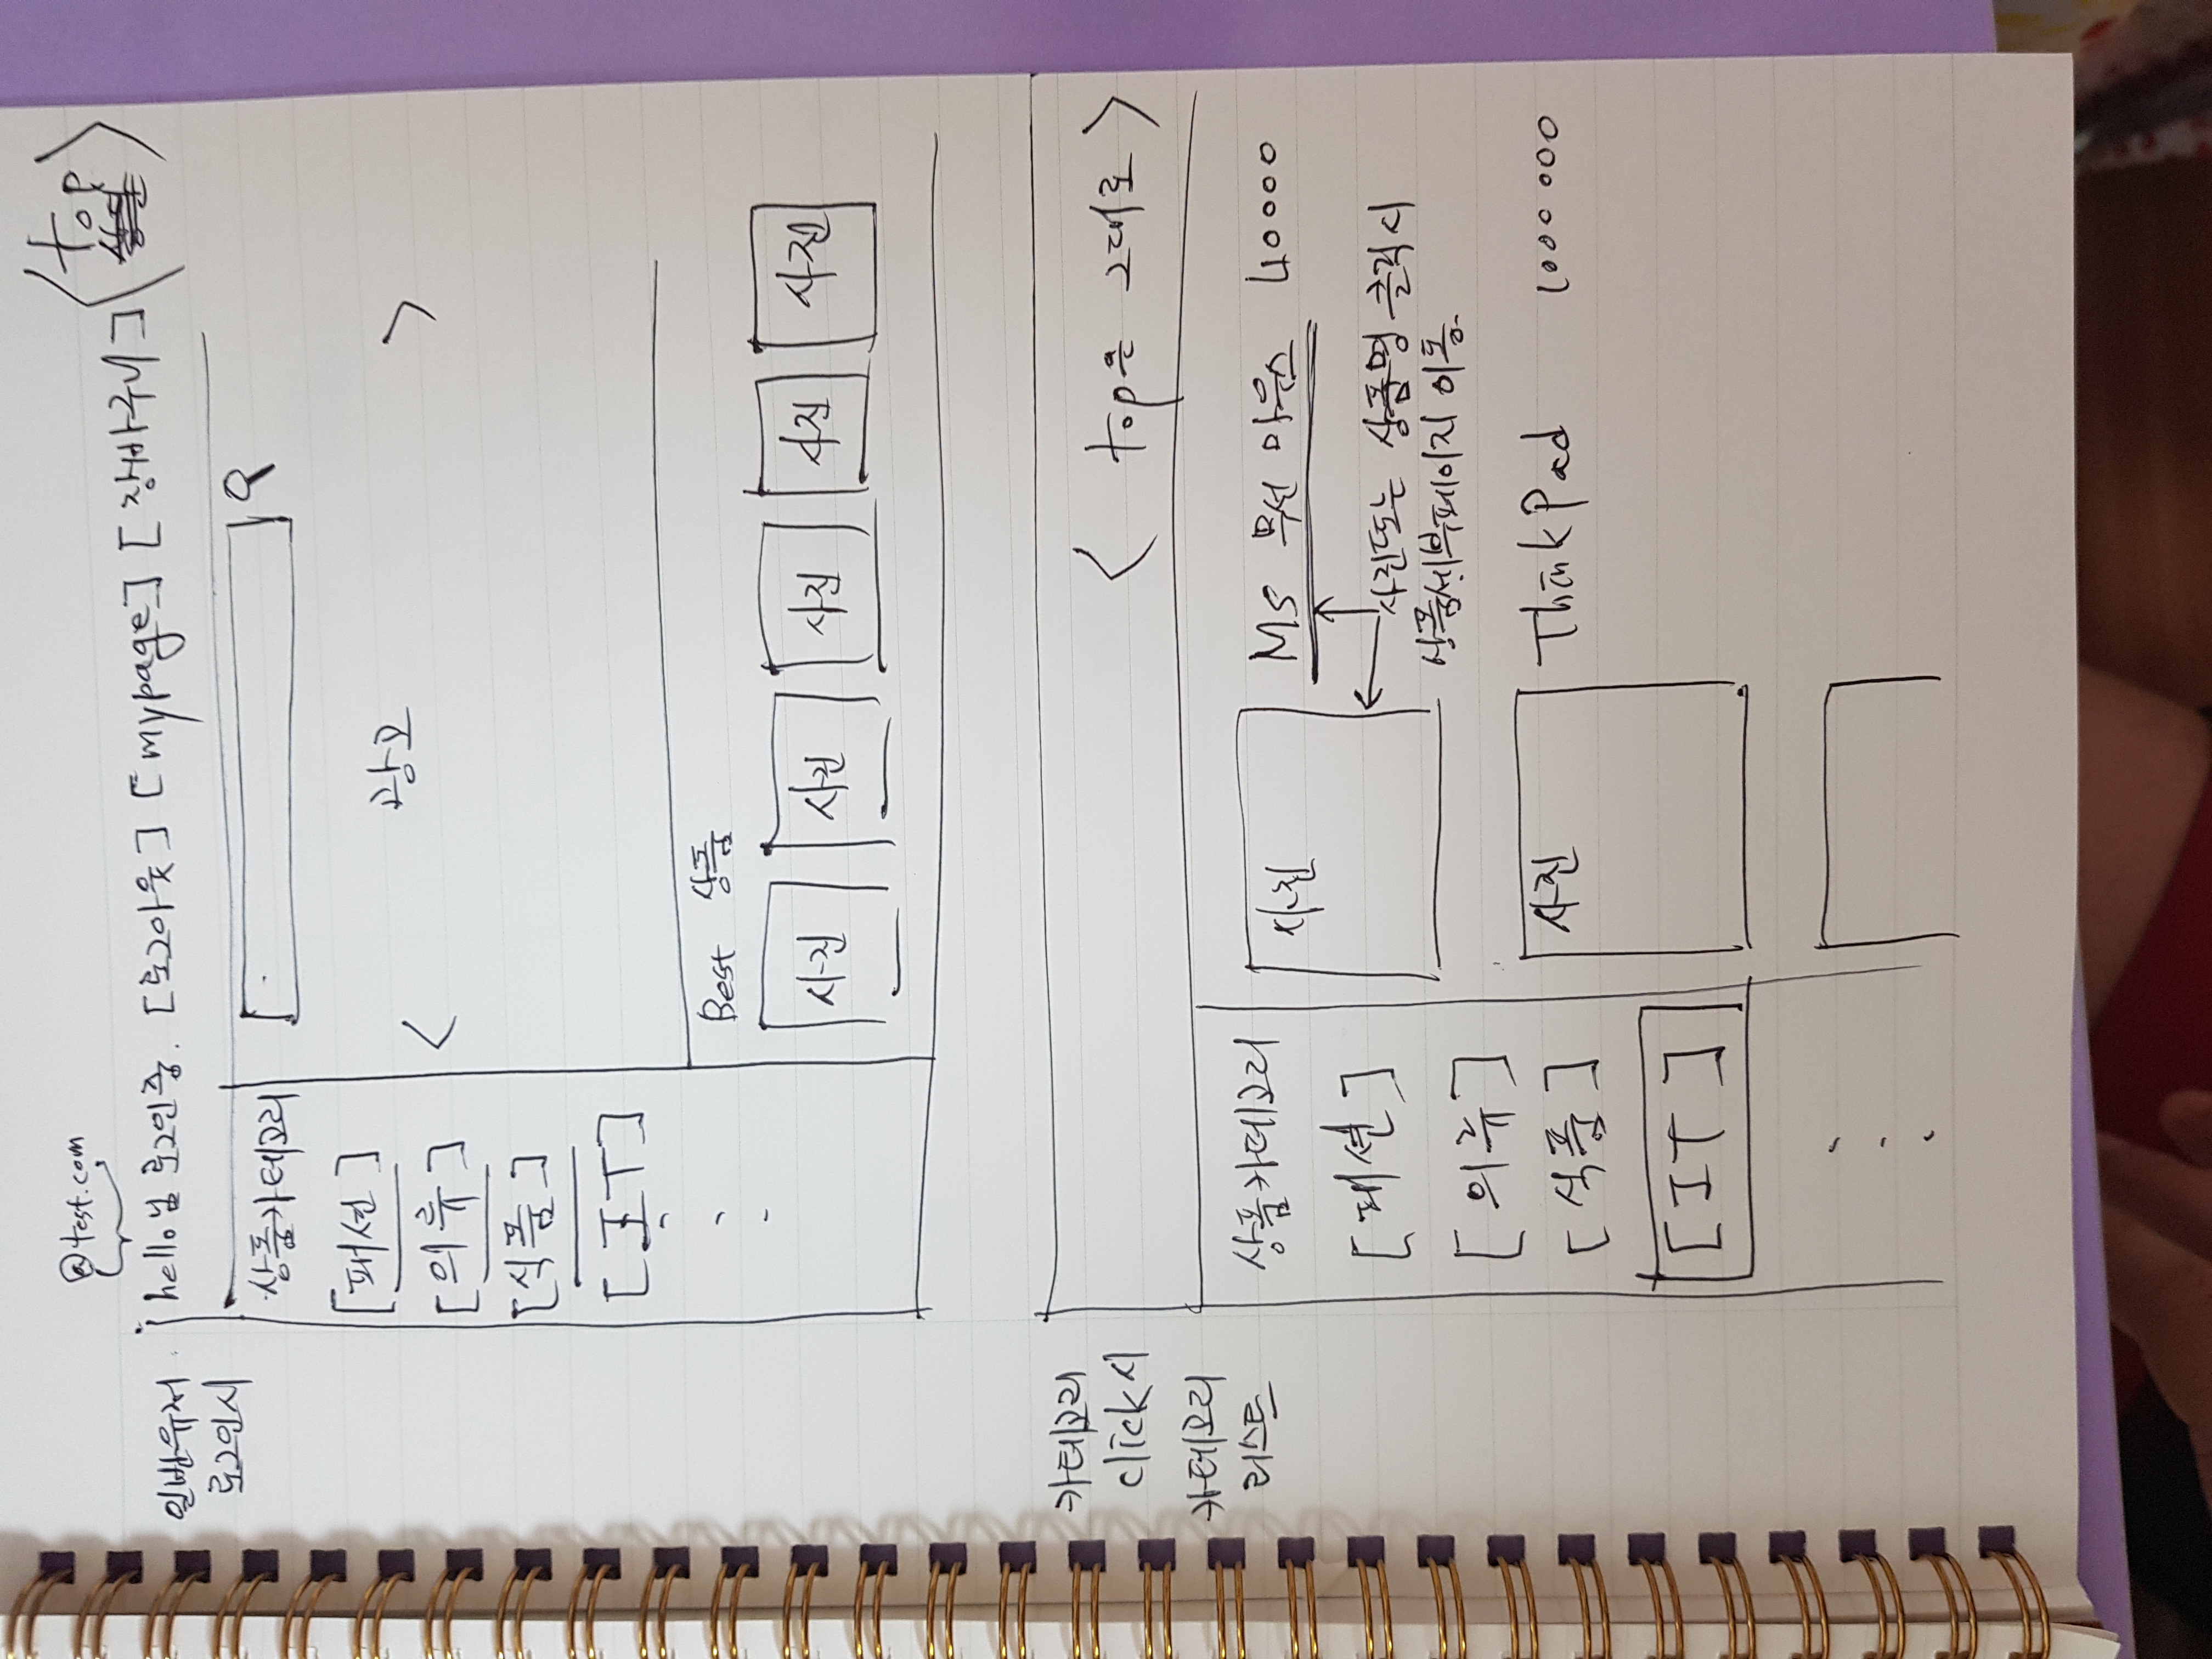 @test.com
<top
일반유저
로그인시
hello님 로그인중. [로그아웃] [mypage] [장바구니]
상품카테고리
[패션]
[의류]
[식품]
[IT]
<
광고
>
Best 상품
사진 사진 사진 사진 사진
카테고리
click시
카테고리
리스트
< top은 그대로 >
상품카테고리
[패션]
[의류]
[식품]
[IT]
사진
MS 무선 마우스 40000
사진또는 상품명 클릭시
상품세부페이지 이동.
사진
ThinkPad 1000000